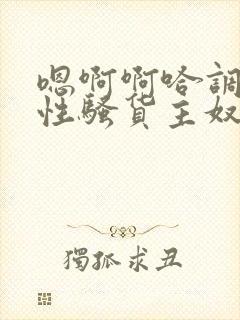 嗯啊啊哈調
性騷货主奴
獨孤求丑